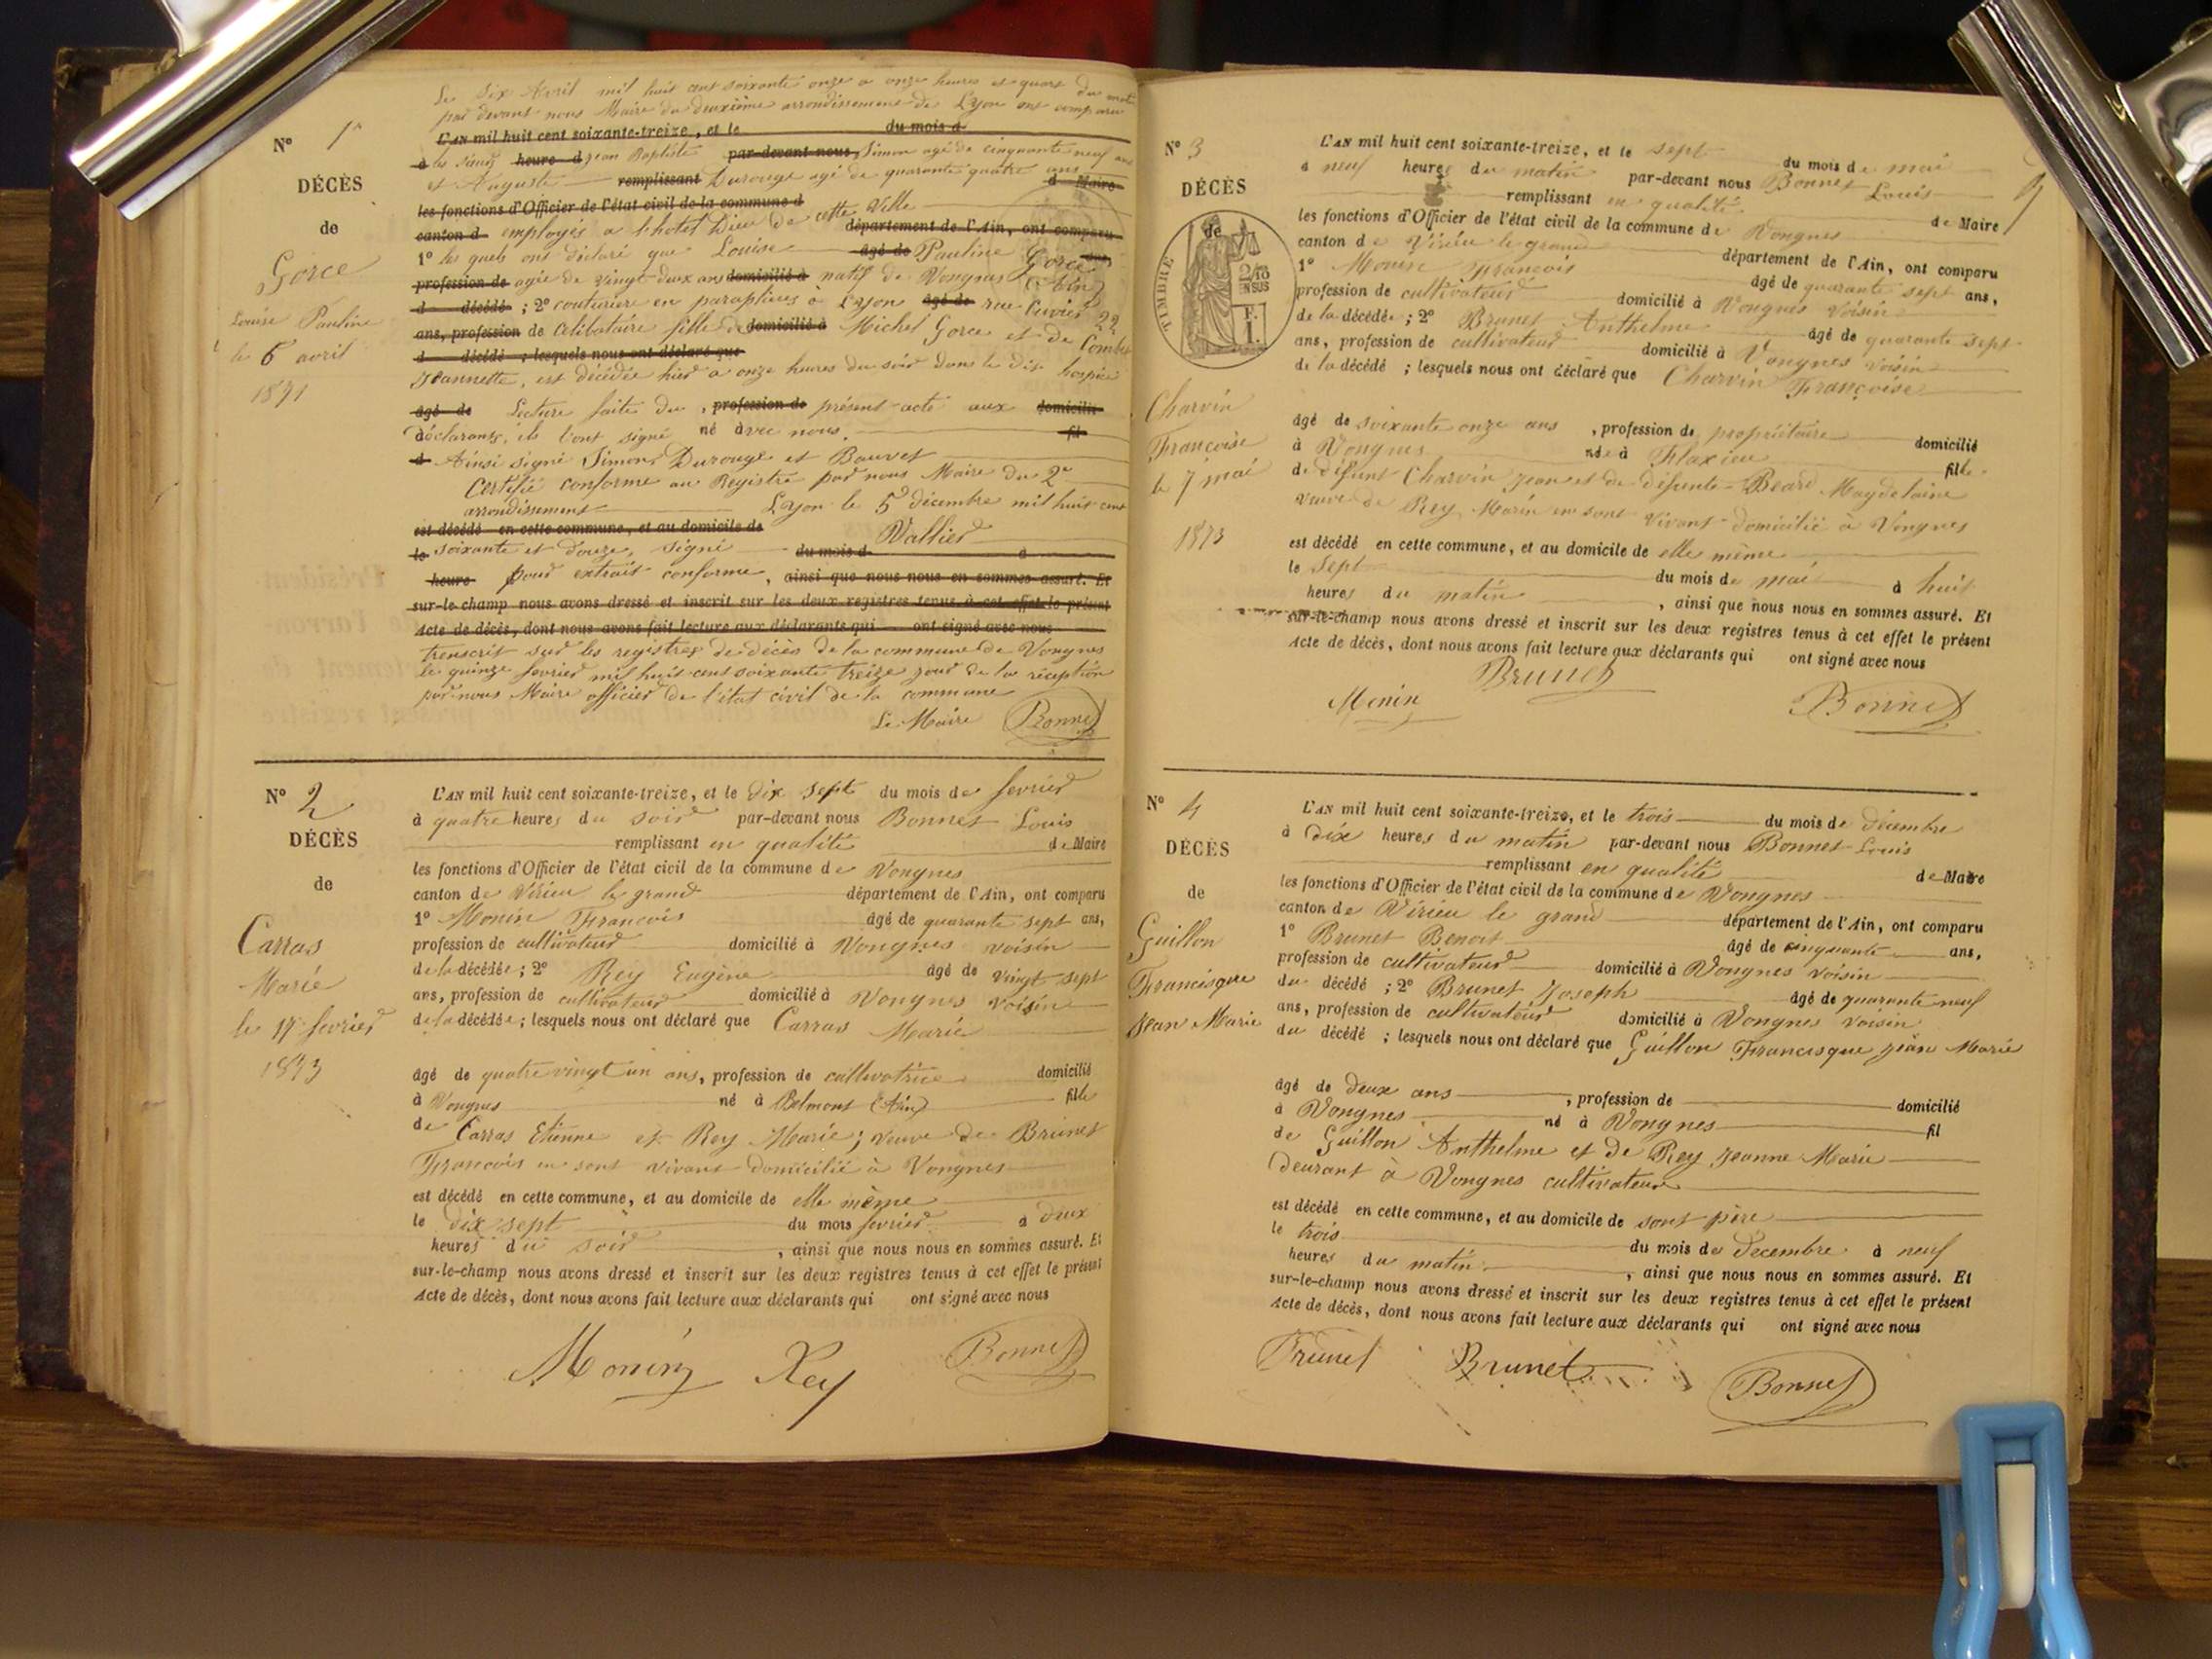 Le six Avril mil huit cent soixante onze a onze heures et quart du matin
par devant nous Maire du deuxième arrondissement de Lyon ont comparu
Nº 1er
L'AN mil huit cent soixante-treize, et le du mois d
à les sieurs heure d jean Baptiste par-devant nous, Simon agé de cinquante neuf ans
DÉCÈS
et Auguste remplissant Durouge agé de quarante quatre ans d Maire
les fonctions d'Officier de l'état civil de la commune d
de
canton d employés a l'hotel Dieu de cette Ville département de l'Ain, ont comparu
Gorce
1º les quels ont déclaré que Louise âgé de Pauline Gorce ans,
profession de agée de vingt deux ans domicilié à natif de Vongnes (Ain)
Louise Pauline
d décédé ; 2º couturiere en parapluies à Lyon âgé de rue Cuvier 22
ans, profession de Celibataire fille de domicilié à Michel Gorce et de Combet
le 6 avril
d décédé ; lesquels nous ont déclaré que
1871
jeannette, est décédée hier a onze heures du soir dans le dit hospice
âgé de Lecture faite du , profession de présent acte aux domicilié
déclarants, ils l'ont signé né avec nous. fil
d Ainsi signé Simon, Durouge et Bouvet
Certifié conforme au Registre par nous Maire du 2e
arrondissement Lyon le 5 décembre mil huit cent
est décédé en cette commune, et au domicile de Vallier
le soixante et douze, signé du mois d à
heure pour extrait conforme, ainsi que nous nous en sommes assuré. Et
sur-le-champ nous avons dressé et inscrit sur les deux registres tenus à cet effet le présent
Acte de décès, dont nous avons fait lecture aux déclarants qui ont signé avec nous
transcrit sur les registres de décès de la commune de Vongnes
le quinze fevrier mil huit cent soixante treize jour de la réception
par nous Maire officier de l'état civil de la commune
Le Maire Bonnet
Nº 2
DÉCÈS
de
Carras
Marie
le 17 fevrier
1873
L'AN mil huit cent soixante-treize, et le dix sept du mois de fevrier
à quatre heures du soir par-devant nous Bonnet Louis
remplissant en qualité de Maire
les fonctions d'Officier de l'état civil de la commune de Vongnes
canton de Virieu le grand département de l'Ain, ont comparu
1º Monin François âgé de quarante sept ans,
profession de cultivateur domicilié à Vongnes voisin
de la décédée ; 2º Rey Eugène âgé de vingt sept
ans, profession de cultivateur domicilié à Vongnes voisin
de la décédée ; lesquels nous ont déclaré que Carras Marie
âgé de quatre vingt un ans, profession de cultivatrice domicilié
à Vongnes né à Belmont (Ain) fille
de Carras Etienne et Rey Marie; veuve de Brunet
François en sont vivant domicilié à Vongnes
est décédé en cette commune, et au domicile de elle même
le dix sept du mois fevrier à deux
heures du soir , ainsi que nous nous en sommes assuré. Et
sur-le-champ nous avons dressé et inscrit sur les deux registres tenus à cet effet le présent
Acte de décès, dont nous avons fait lecture aux déclarants qui ont signé avec nous
Monin Rey Bonnet
Nº 3
DÉCÈS
de
TIMBRE
2/10 EN SUS
F. 1.
Charvin
Françoise
le 7 mai
1873
L'AN mil huit cent soixante-treize, et le sept du mois de mai
à neuf heures du matin par-devant nous Bonnet Louis
remplissant en qualité de Maire
les fonctions d'Officier de l'état civil de la commune de Vongnes
canton de Virieu le grand département de l'Ain, ont comparu
1º Monin François âgé de quarante sept ans,
profession de cultivateur domicilié à Vongnes voisin
de la décédée ; 2º Brunet Anthelme âgé de quarante sept
ans, profession de cultivateur domicilié à Vongnes voisin
de la décédé ; lesquels nous ont déclaré que Charvin Françoise
âgé de soixante onze ans , profession de propriétaire domicilié
à Vongnes née à Flaxieu fille
de défunt Charvin Jean et de défunte Béard Magdelaine
veuve de Rey Marin en sont vivant domicilié à Vongnes
est décédé en cette commune, et au domicile de elle même
le Sept du mois de mai à huit
heures du matin , ainsi que nous nous en sommes assuré. Et
sur-le-champ nous avons dressé et inscrit sur les deux registres tenus à cet effet le présent
Acte de décès, dont nous avons fait lecture aux déclarants qui ont signé avec nous
Monin Brunet Bonnet
Nº 4
DÉCÈS
de
Guillon
Francisque
Jean Marie
L'AN mil huit cent soixante-treize, et le trois du mois de décembre
à dix heures du matin par-devant nous Bonnet Louis
remplissant en qualité de Maire
les fonctions d'Officier de l'état civil de la commune de Vongnes
canton de Virieu le grand département de l'Ain, ont comparu
1º Brunet Benoit âgé de cinquante ans,
profession de cultivateur domicilié à Vongnes voisin
du décédé ; 2º Brunet Joseph âgé de quarante neuf
ans, profession de cultivateur domicilié à Vongnes voisin
du décédé ; lesquels nous ont déclaré que Guillon Francisque jean Marie
âgé de deux ans , profession de domicilié
à Vongnes né à Vongnes fil
de Guillon Anthelme et de Rey Jeanne Marie
demeurant à Vongnes cultivateurs
est décédé en cette commune, et au domicile de sont père
le trois du mois de décembre à neuf
heures du matin , ainsi que nous nous en sommes assuré. Et
sur-le-champ nous avons dressé et inscrit sur les deux registres tenus à cet effet le présent
Acte de décès, dont nous avons fait lecture aux déclarants qui ont signé avec nous
Brunet Brunet Bonnet